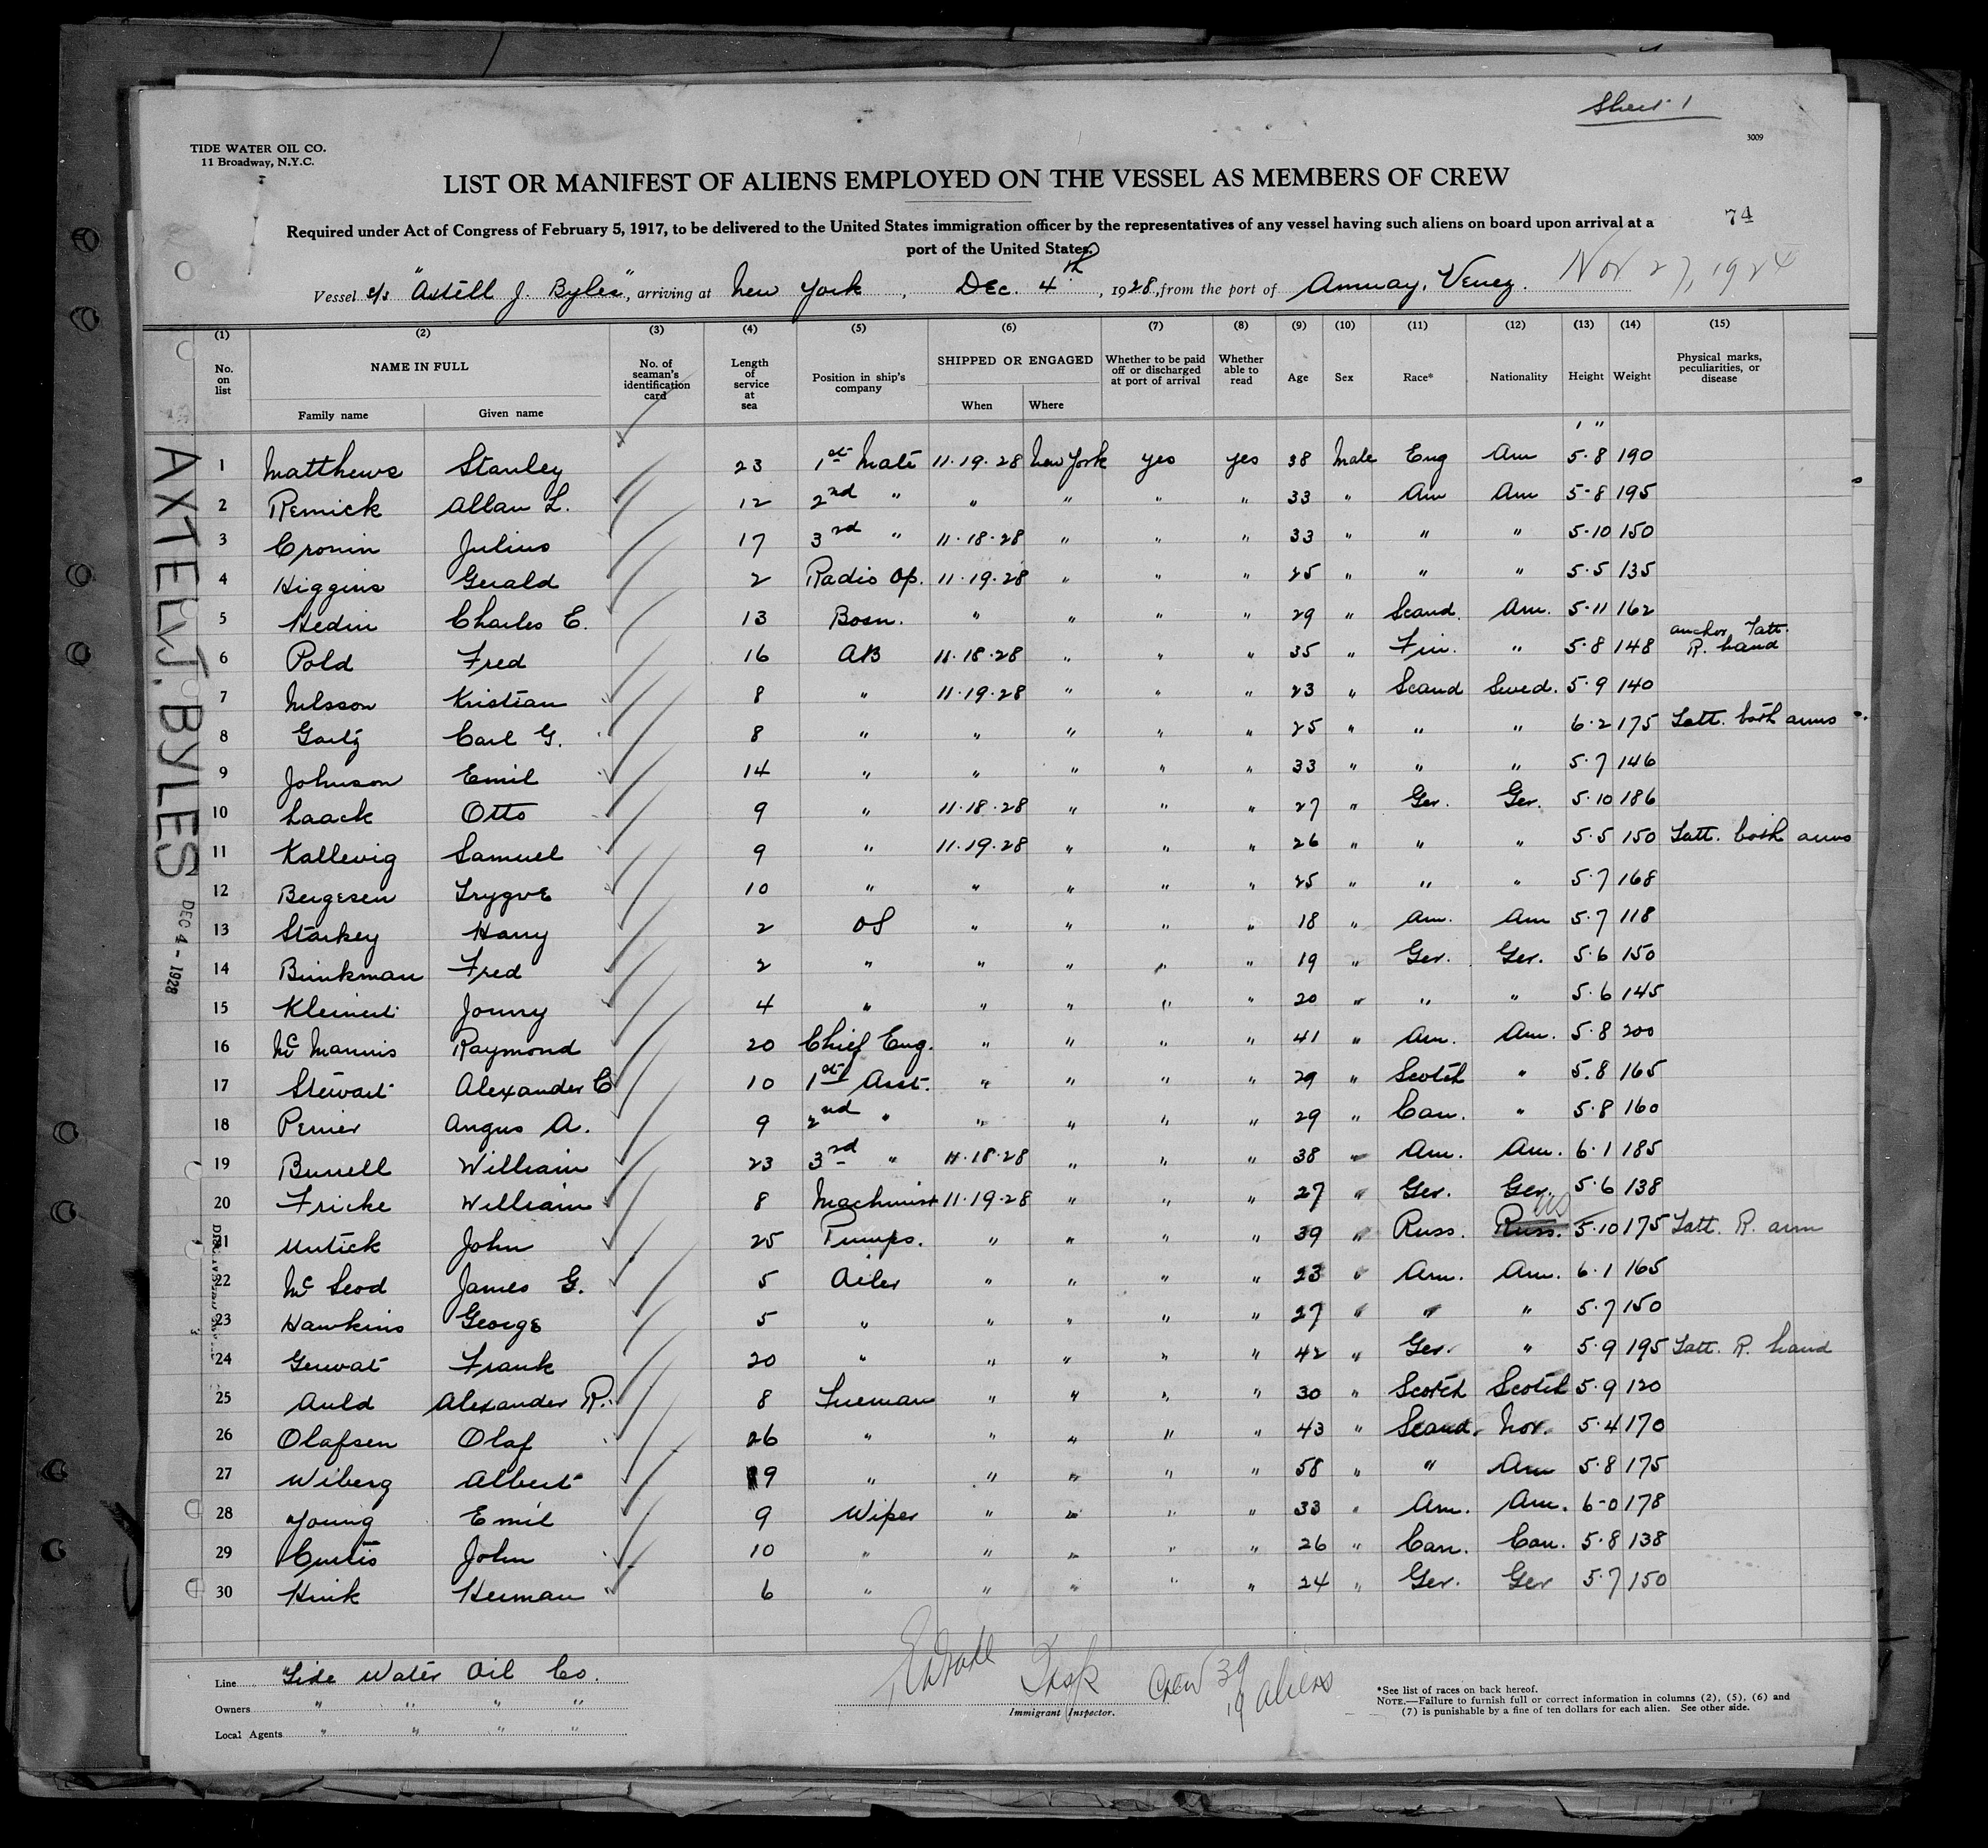 Sheet 1
3009
TIDE WATER OIL CO.
11 Broadway, N.Y.C.
LIST OR MANIFEST OF ALIENS EMPLOYED ON THE VESSEL AS MEMBERS OF CREW
74
Required under Act of Congress of February 5, 1917, to be delivered to the United States immigration officer by the representatives of any vessel having such aliens on board upon arrival at a
port of the United States.
Vessel s/s "Axtell J. Byles", arriving at New York, Dec. 4th, 1928, from the port of Amuay, Venez. Nov 27, 1928
(1) (2) (3) (4) (5) (6) (7) (8) (9) (10) (11) (12) (13) (14) (15)
No. on list NAME IN FULL Family name Given name No. of seaman's identification card Length of service at sea Position in ship's company SHIPPED OR ENGAGED When Where Whether to be paid off or discharged at port of arrival Whether able to read Age Sex Race* Nationality Height Weight Physical marks, peculiarities, or disease
' "
1 Matthews Stanley 23 1st Mate 11-19-28 New York yes yes 38 Male Eng Am 5-8 190
2 Remick Allan L. 12 2nd " " " " " 33 " Am Am 5-8 195
3 Cronin Julius 17 3rd " 11-18-28 " " " 33 " " " 5-10 150
4 Higgins Gerald 2 Radio Op. 11-19-28 " " " 25 " " " 5-5 135
5 Hedin Charles E. 13 Bosn. " " " " 29 " Scand. Am. 5-11 162
6 Pold Fred 16 AB 11-18-28 " " " 35 " Fin. " 5-8 148 anchor Tatt. R. hand
7 Nilsson Kristian 8 " 11-19-28 " " " 23 " Scand Swed. 5-9 140
8 Gartz Carl G. 8 " " " " " 25 " " " 6-2 175 Tatt. both arms
9 Johnson Emil 14 " " " " " 33 " " " 5-7 146
10 Laack Otto 9 " 11-18-28 " " " 27 " Ger. Ger. 5-10 186
11 Kallevig Samuel 9 " 11-19-28 " " " 26 " " " 5-5 150 Tatt. both arms
12 Bergesen Trygve 10 " " " " " 25 " " " 5-7 168
13 Starkey Harry 2 OS " " " " 18 " Am. Am 5-7 118
14 Brinkman Fred 2 " " " " " 19 " Ger. Ger. 5-6 150
15 Kleinert Jonny 4 " " " " " 20 " " " 5-6 145
16 McMannis Raymond 20 Chief Eng. " " " " 41 " Am. Am. 5-8 200
17 Stewart Alexander C 10 1st Asst. " " " " 29 " Scotch " 5-8 165
18 Perrier Angus A. 9 2nd " " " " " 29 " Can. " 5-8 160
19 Burrell William 23 3rd " 11-18-28 " " " 38 " Am. Am. 6-1 185
20 Fricke William 8 Machinist 11-19-28 " " " 27 " Ger. Ger. 5-6 138
21 Untick John 25 Pumps. " " " " 39 " Russ. Russ. US 5-10 175 Tatt. R. arm
22 McLeod James G. 5 Oiler " " " " 23 " Am. Am. 6-1 165
23 Hawkins George 5 " " " " " 27 " " " 5-7 150
24 Gerwat Frank 20 " " " " " 42 " Ger. " 5-9 195 Tatt. R. hand
25 Auld Alexander R. 8 Fireman " " " " 30 " Scotch Scotch 5-9 120
26 Olafsen Olaf 26 " " " " " 43 " Scand. Nor. 5-4 170
27 Wiberg Albert 19 " " " " " 58 " " Am 5-8 175
28 Young Emil 9 Wiper " " " " 33 " Am. Am. 6-0 178
29 Curtis John 10 " " " " " 26 " Can. Can. 5-8 138
30 Hink Herman 6 " " " " " 24 " Ger. Ger 5-7 150
AXTELL J. BYLES
DEC 4 - 1928
Line Tide Water Oil Co.
Owners " " " "
Local Agents " " " "
Insp
Immigrant Inspector.
Crew 39
19 aliens
*See list of races on back hereof.
NOTE.—Failure to furnish full or correct information in columns (2), (5), (6) and
(7) is punishable by a fine of ten dollars for each alien. See other side.